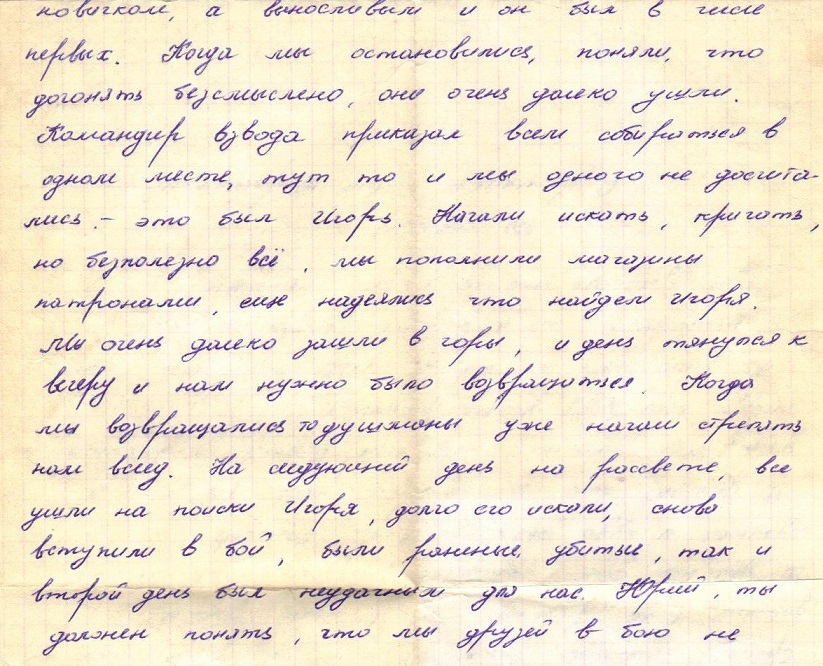 новичком, а выносливым и он был в числе
первых. Когда мы остановились, поняли, что
догонять безсмыслено, они очень далеко ушли.
Командир взвода приказал всем собираться в
одном месте, тут то и мы одного не досчита-
лись. – это был Игорь. Начали искать, кричать,
но безполезно всё, мы пополнили магазины
патронами, еще надеялись что найдем Игоря.
Мы очень далеко зашли в горы, и день тянулся к
вечеру и нам нужно было возвращаться. Когда
мы возвращались то душманы уже начали стрелять
нам вслед. На следующий день на рассвете, все
ушли на поиски Игоря, долго его искали, снова
вступили в бой, были раненые, убитые, так и
второй день был неудачным для нас. Юрий, ты
должен понять, что мы друзей в бою не